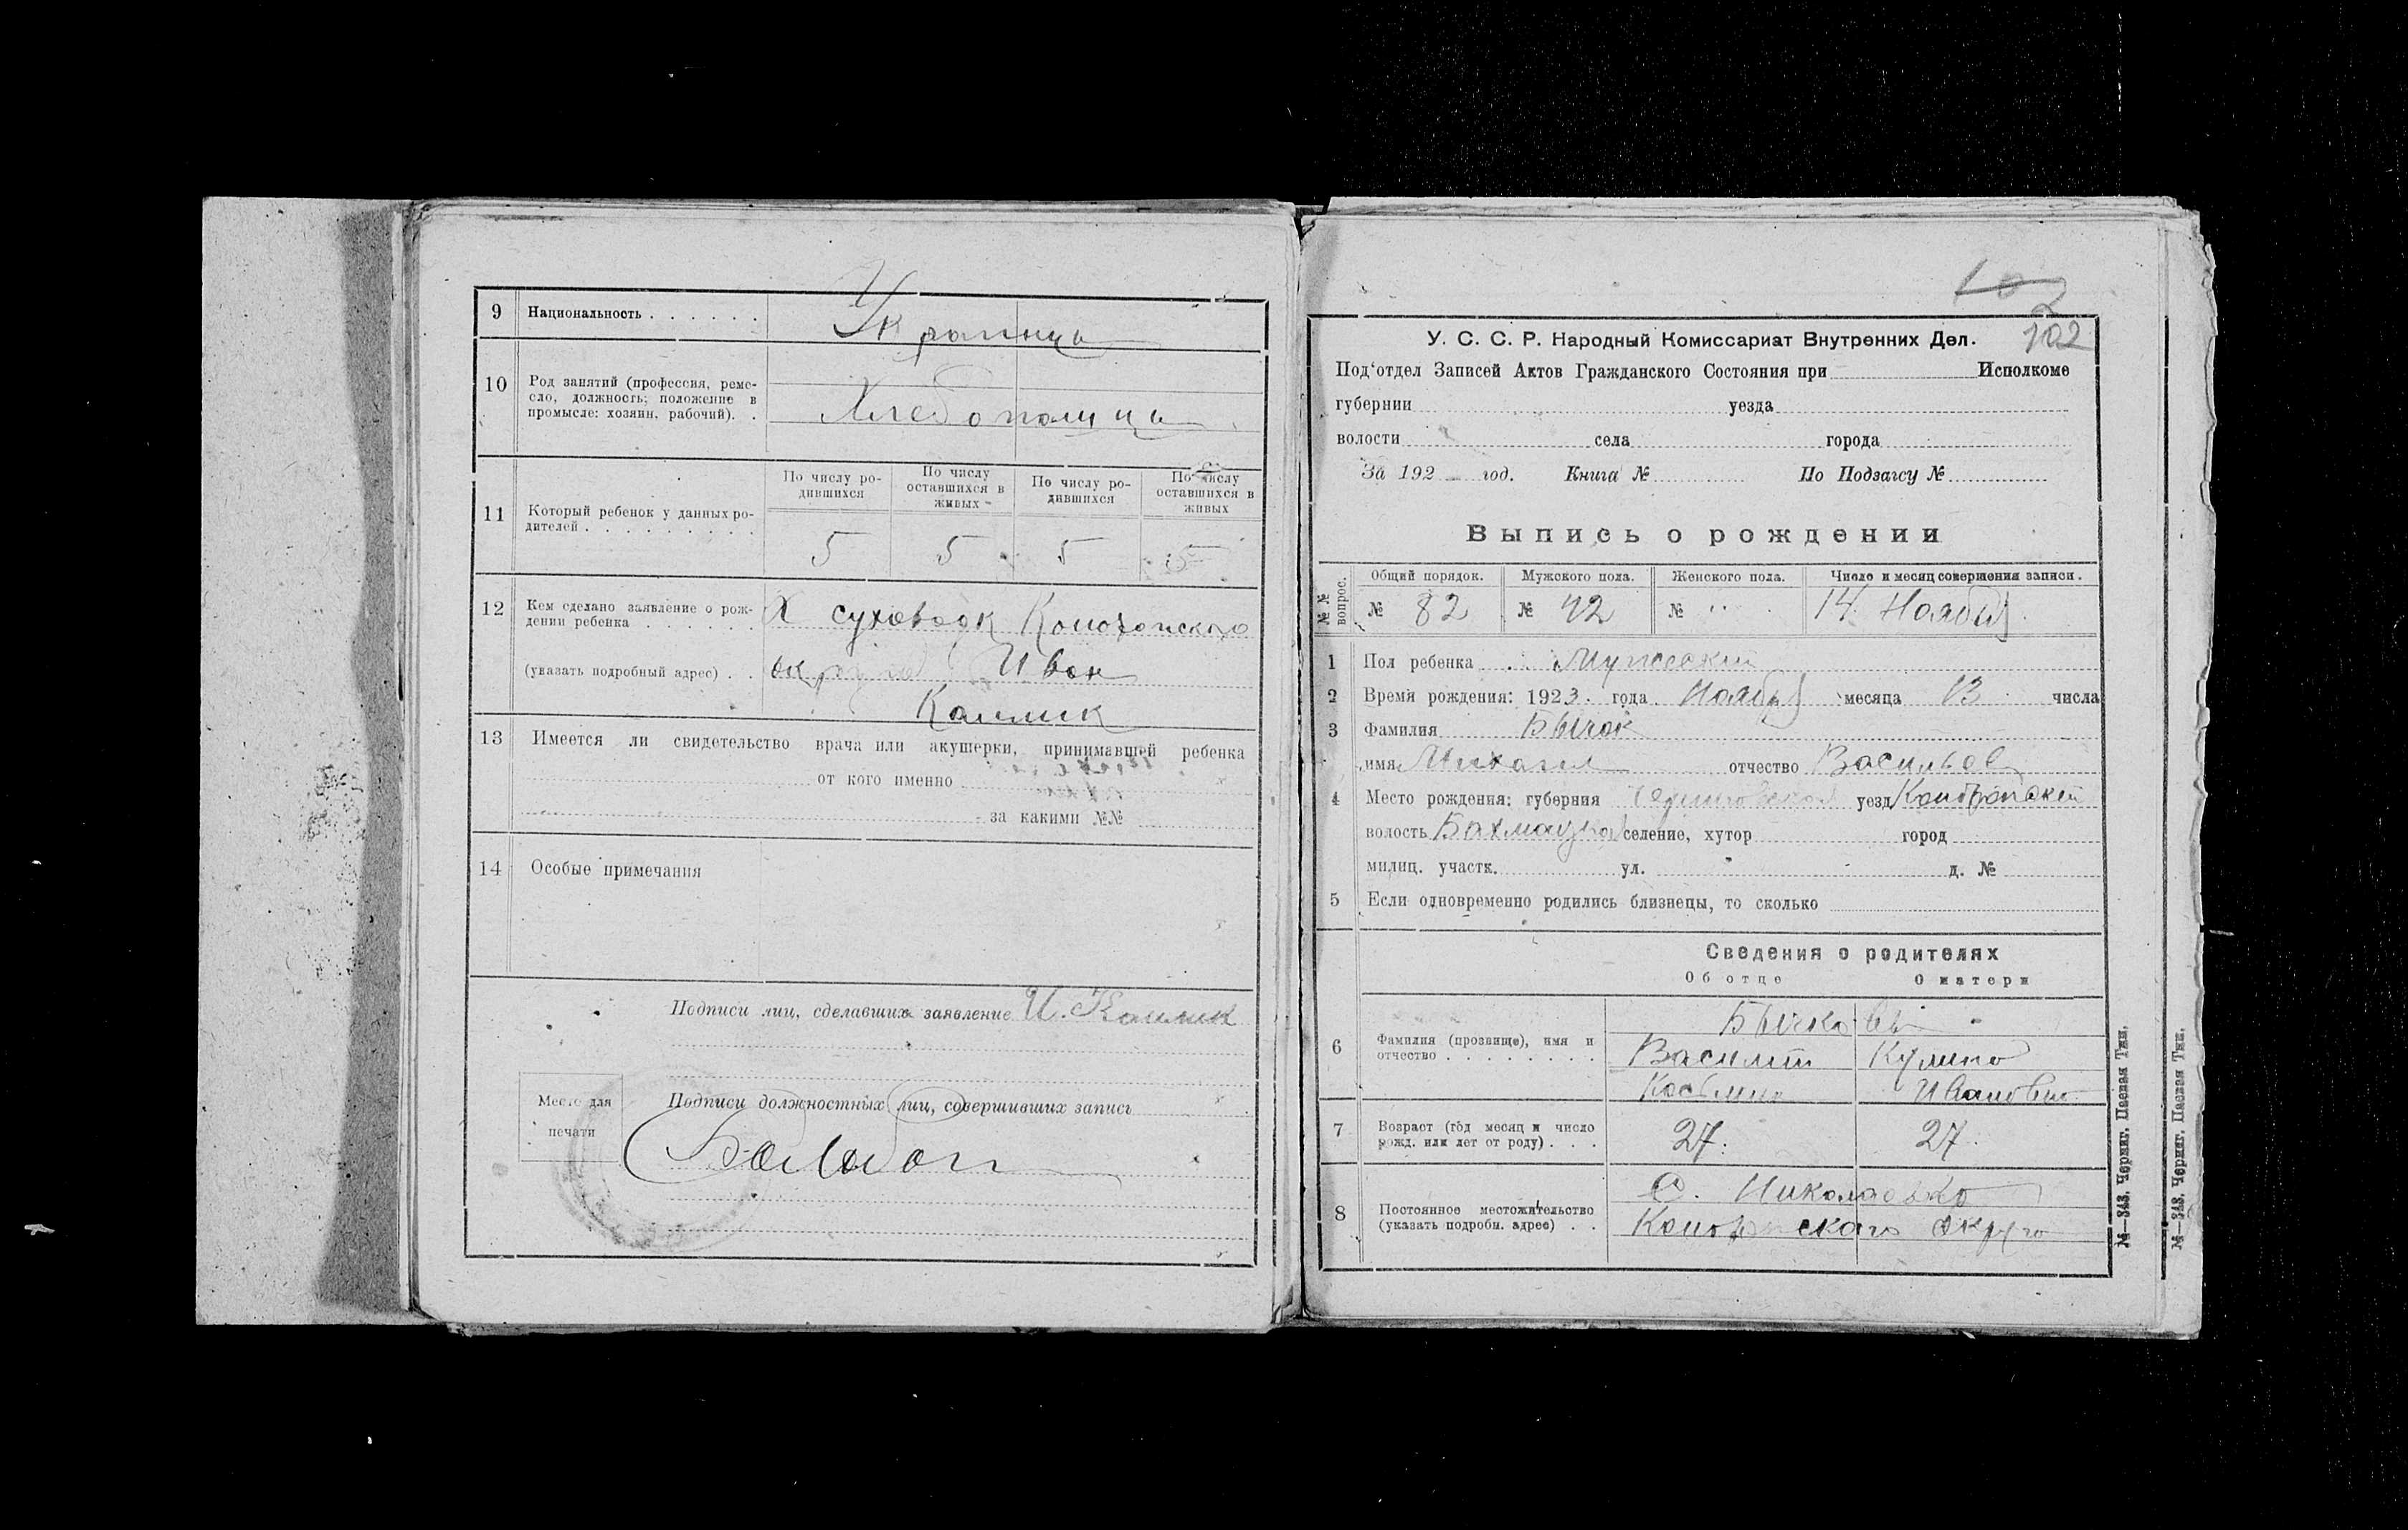 9 Национальность . . . . . . Украинцы
10 Род занятий (профессия, реме-
сло, должность; положение в
промысле: хозяин, рабочий). . Хлебопашцы
По числу ро-
дившихся По числу
оставшихся в
живых По числу ро-
дившихся По числу
оставшихся в
живых
11 Который ребенок у данных ро-
дителей . . . . . . . . . 5 5 5 5
12 Кем сделано заявление о рож-
дении ребенка . . . . . . Х Суховодк Конотопского
(указать подробный адрес) . . округа Иван
Калмик
13 Имеется ли свидетельство врача или акушерки, принимавшей ребенка
от кого именно
за какими №№
14 Особые примечания
Подписи лиц, сделавших заявление И. Калмик
Место для
печати
Подписи должностных лиц, совершивших запись
102
102
У. С. С. Р. Народный Комиссариат Внутренних Дел.
Под'отдел Записей Актов Гражданского Состояния при Исполкоме
губернии уезда
волости села города
За 192 год. Книга № По Подзагсу №
Выпись о рождении
№ № вопрос. Общий порядок. Мужского пола. Женского пола. Число и месяц совершения записи.
№ 82 № 42 № " 14 Ноября
1 Пол ребенка Мужеский
2 Время рождения: 1923 года Ноября месяца 13 числа
3 Фамилия Бычок
имя Михаил отчество Васильев
4 Место рождения: губерния Черниговская уезд Конотопский
волость Бахмацкая селение, хутор город
милиц. участк. ул. д. №
5 Если одновременно родились близнецы, то сколько
Сведения о родителях
Об отце О матери
6 Фамилия (прозвище), имя и
отчество . . . . . . . . Бычковы
Василий Кулина
Косьмин Ивановна
7 Возраст (год месяц и число
рожд. или лет от роду) . . . 27. 27.
8 Постоянное местожительство
(указать подробн. адрес) . . С. Николаевко
Конотопского Округа
№—343. Черниг. Паевая Тип.
№—343. Черниг. Паевая Тип.